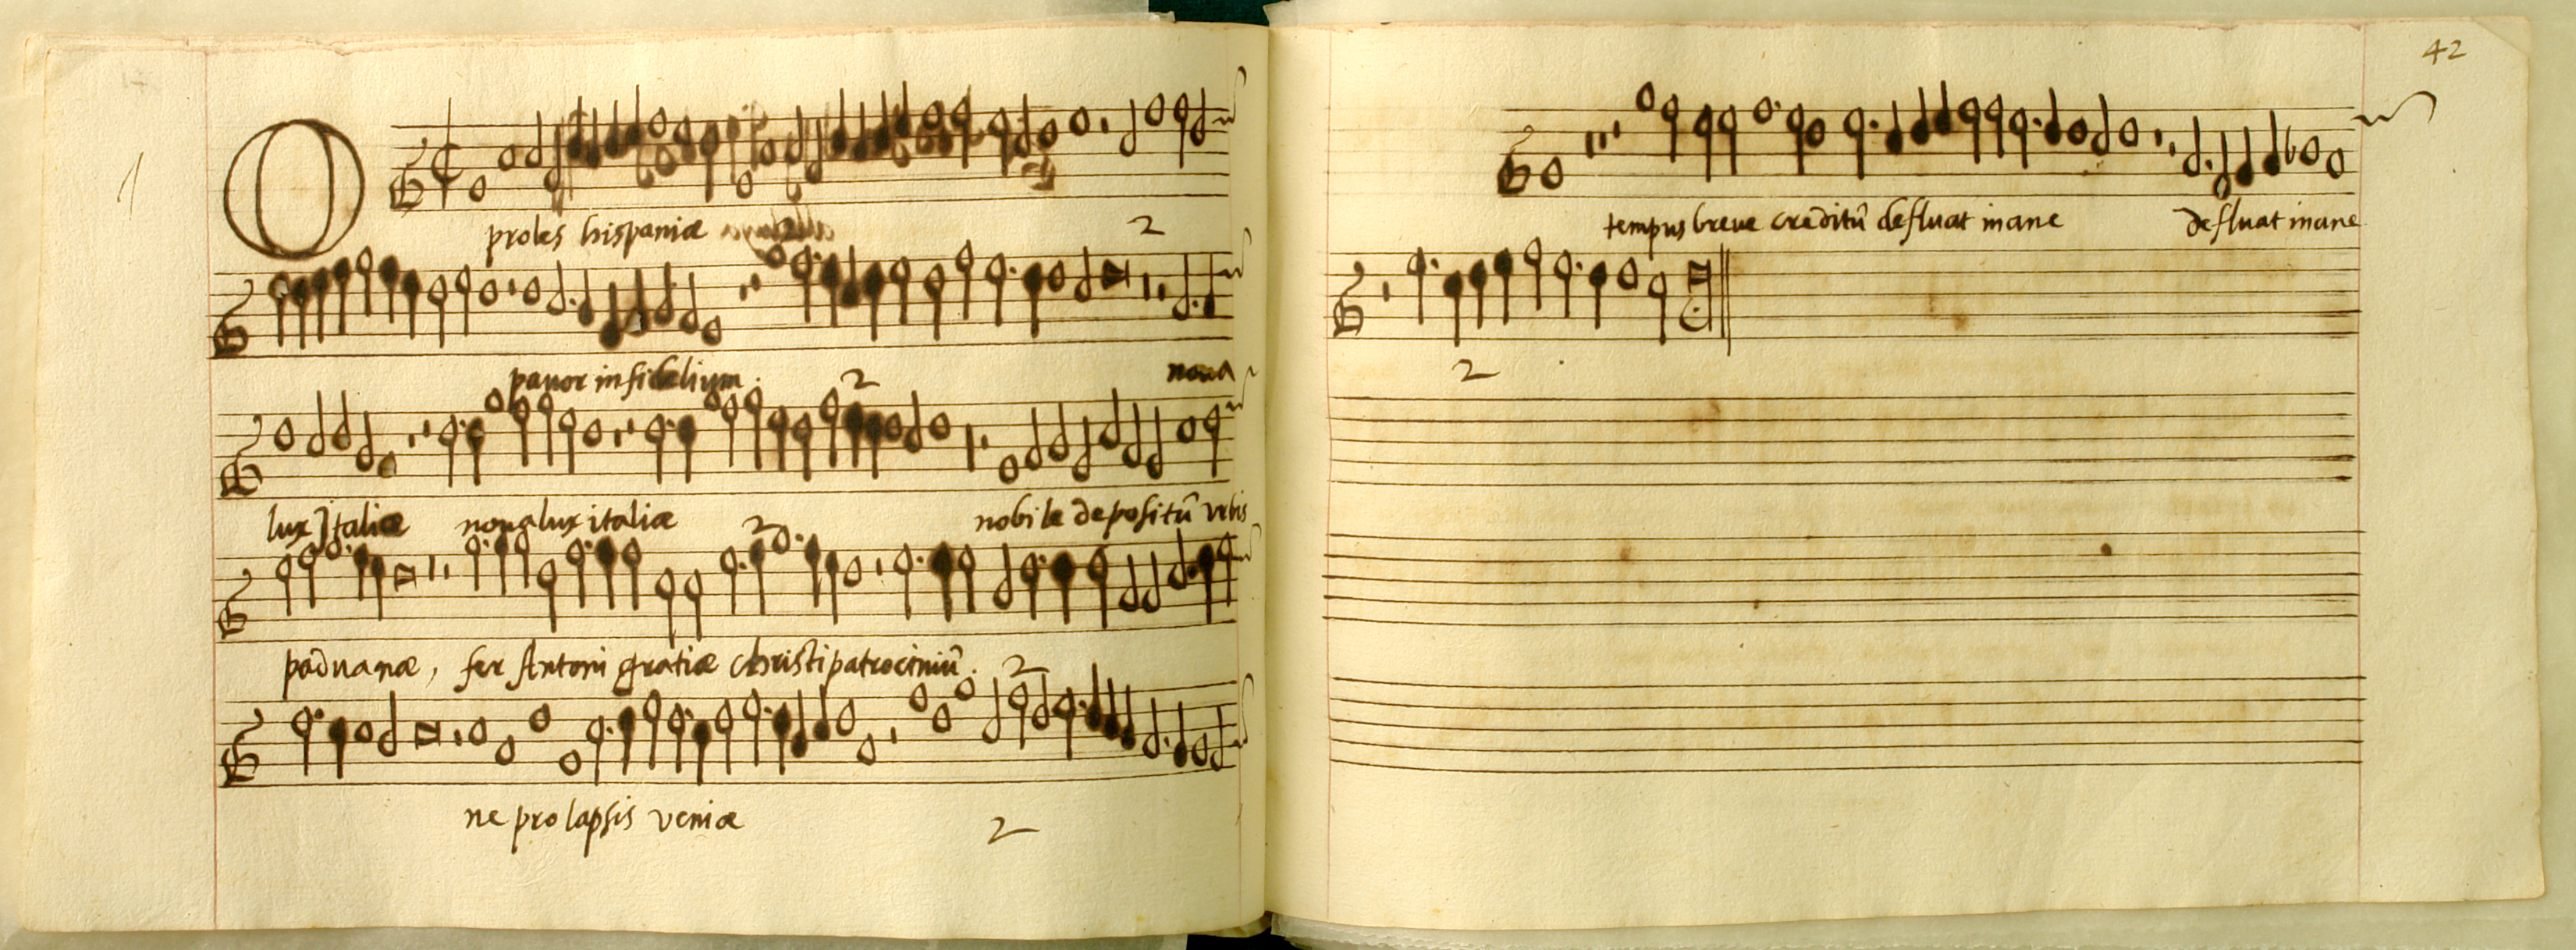 O proles hispaniæ 2
pavor infidelium. 2 nova
lux Italiæ nova lux italiæ 2 nobile depositū urbis
paduanæ, fer Antoni gratiæ christi patrociniū. 2
ne prolapsis veniæ 2
42
tempus breve creditū defluat inane defluat inane
2